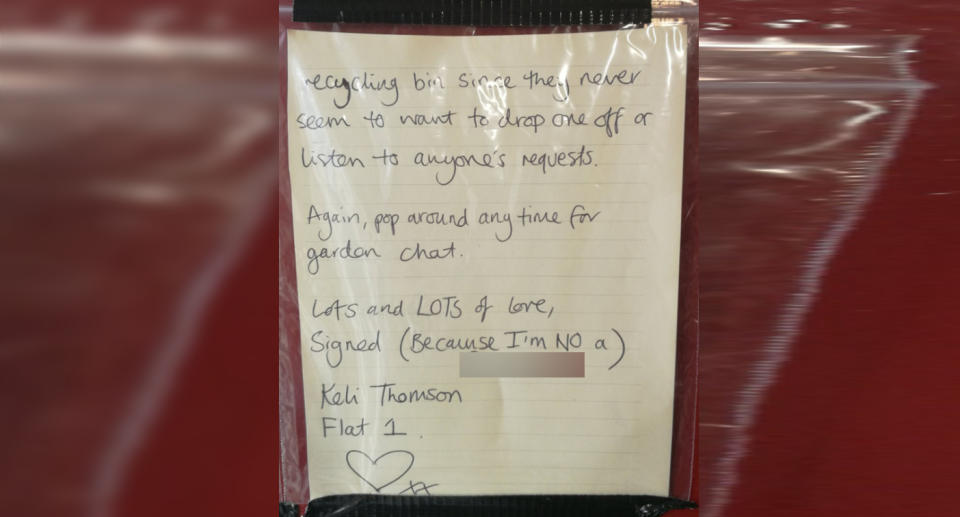 recycling bin since they never
seem to want to drop one off or
listen to anyone's requests.
Again, pop around any time for
garden chat.
Lots and LOTS of love,
Signed (Because I'm NO a)
Keli Thomson
Flat 1.
xx